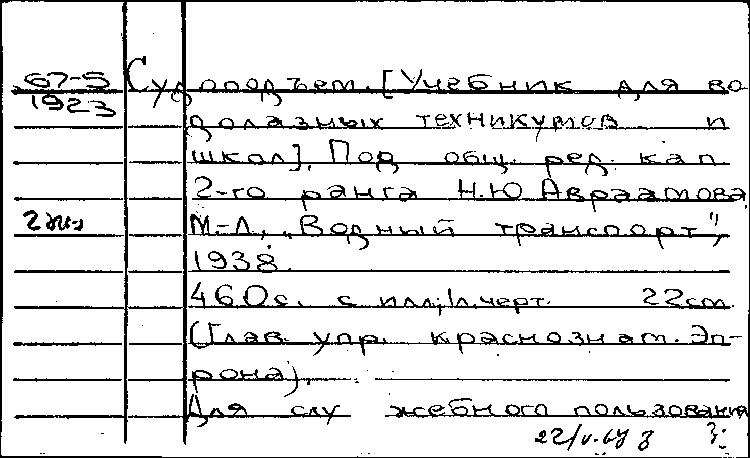 67-5
1923
Судоподъем. [Учебник для во
долазных техникумов и
школ]. Под общ. ред. кап
2-го ранга Н.Ю Авраамова
2 экз
М-Л, „Водный транспорт",
1938.
460 с. с илл; 1л.черт. 22см.
(Глав. упр. краснознам. Эп-
рона).
Для слу жебного пользования